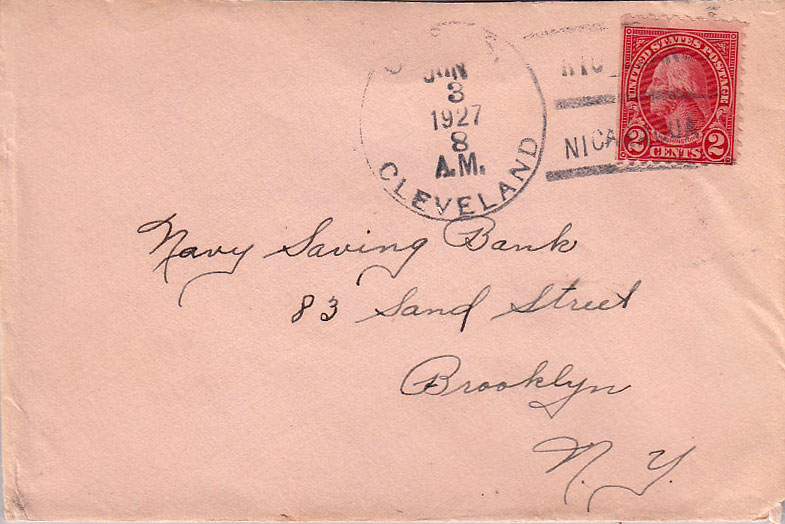 JUN
3
1927
8
A.M.
CLEVELAND
UNITED STATES POSTAGE
2 CENTS 2
Navy Saving Bank
83 Sand Street
Brooklyn
N. Y.